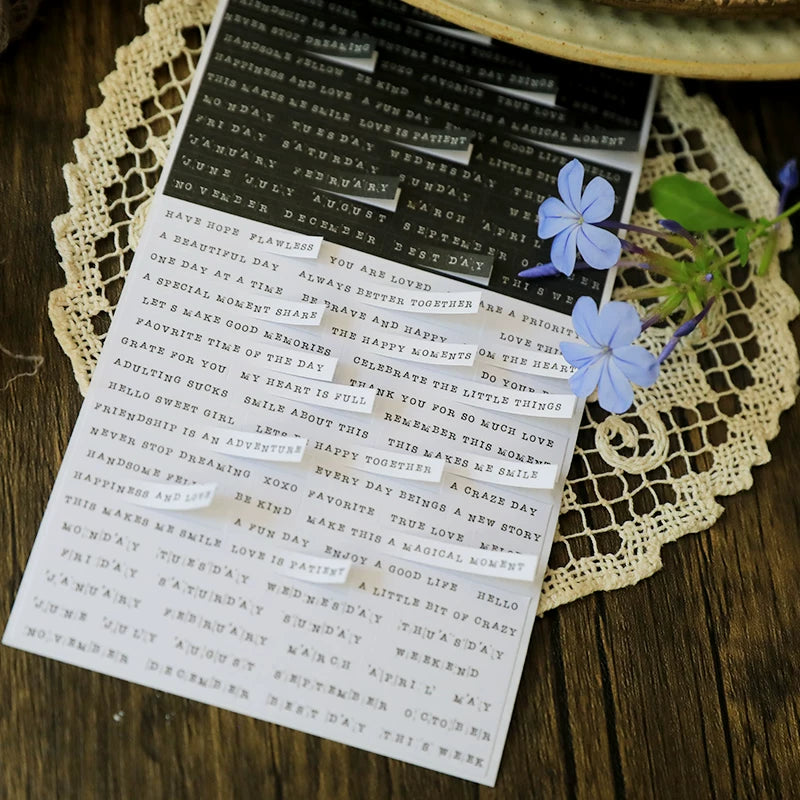 GIRL
FRIENDSHIP IS AN
NEVER STOP DREAMING
HANDSOME FELLOW BE KIND FAVORITE EVERY DAY BEINGS
HAPPINESS AND LOVE A FUN DAY MAKE THIS TRUE LOVE
THIS MAKES ME SMILE LOVE IS PATIENT A MAGICAL MOMENT
MONDAY TUESDAY WEDNESDAY A LITTLE
FRIDAY SATURDAY SUNDAY
JANUARY FEBRUARY MARCH APRIL
JUNE JULY AUGUST SEPTEMBER
NOVEMBER DECEMBER BEST DAY THIS WE
HAVE HOPE FLAWLESS YOU ARE LOVED ARE A PRIORITY
A BEAUTIFUL DAY ALWAYS BETTER TOGETHER LOVE THI
ONE DAY AT A TIME BE BRAVE AND HAPPY OM THE HEART
A SPECIAL MOMENT SHARE THE HAPPY MOMENTS DO YOUR
LET'S MAKE GOOD MEMORIES CELEBRATE THE LITTLE THINGS
FAOVRITE TIME OF THE DAY THANK YOU FOR SO MUCH LOVE
GRATE FOR YOU MY HEART IS FULL REMEMBER THIS MOMENT
ADULTING SUCKS SMILE ABOUT THIS THIS MAKES ME SMILE
HELLO SWEET GIRL LETS HAPPY TOGETHER A CRAZE DAY
FRIENDSHIP IS AN ADVENTURE EVERY DAY BEINGS A NEW STORY
NEVER STOP DREAMING XOXO FAVORITE TRUE LOVE
HANDSOME BE KIND MAKE THIS A MAGICAL MOMENT
HAPPINESS AND LOVE A FUN DAY ENJOY A GOOD LIFE HELLO
THIS MAKES ME SMILE LOVE IS PATIENT A LITTLE BIT OF CRAZY
MONDAY TUESDAY WEDNESDAY THUASDAY
FRIDAY SATURDAY SUNDAY WEEKEND
JANUARY FEBRUARY MARCH APRIL MAY
JUNE JULY AUGUST SEPTEMBER OCTOBER
NOVEMBER DECEMBER BEST DAY THIS WEEK